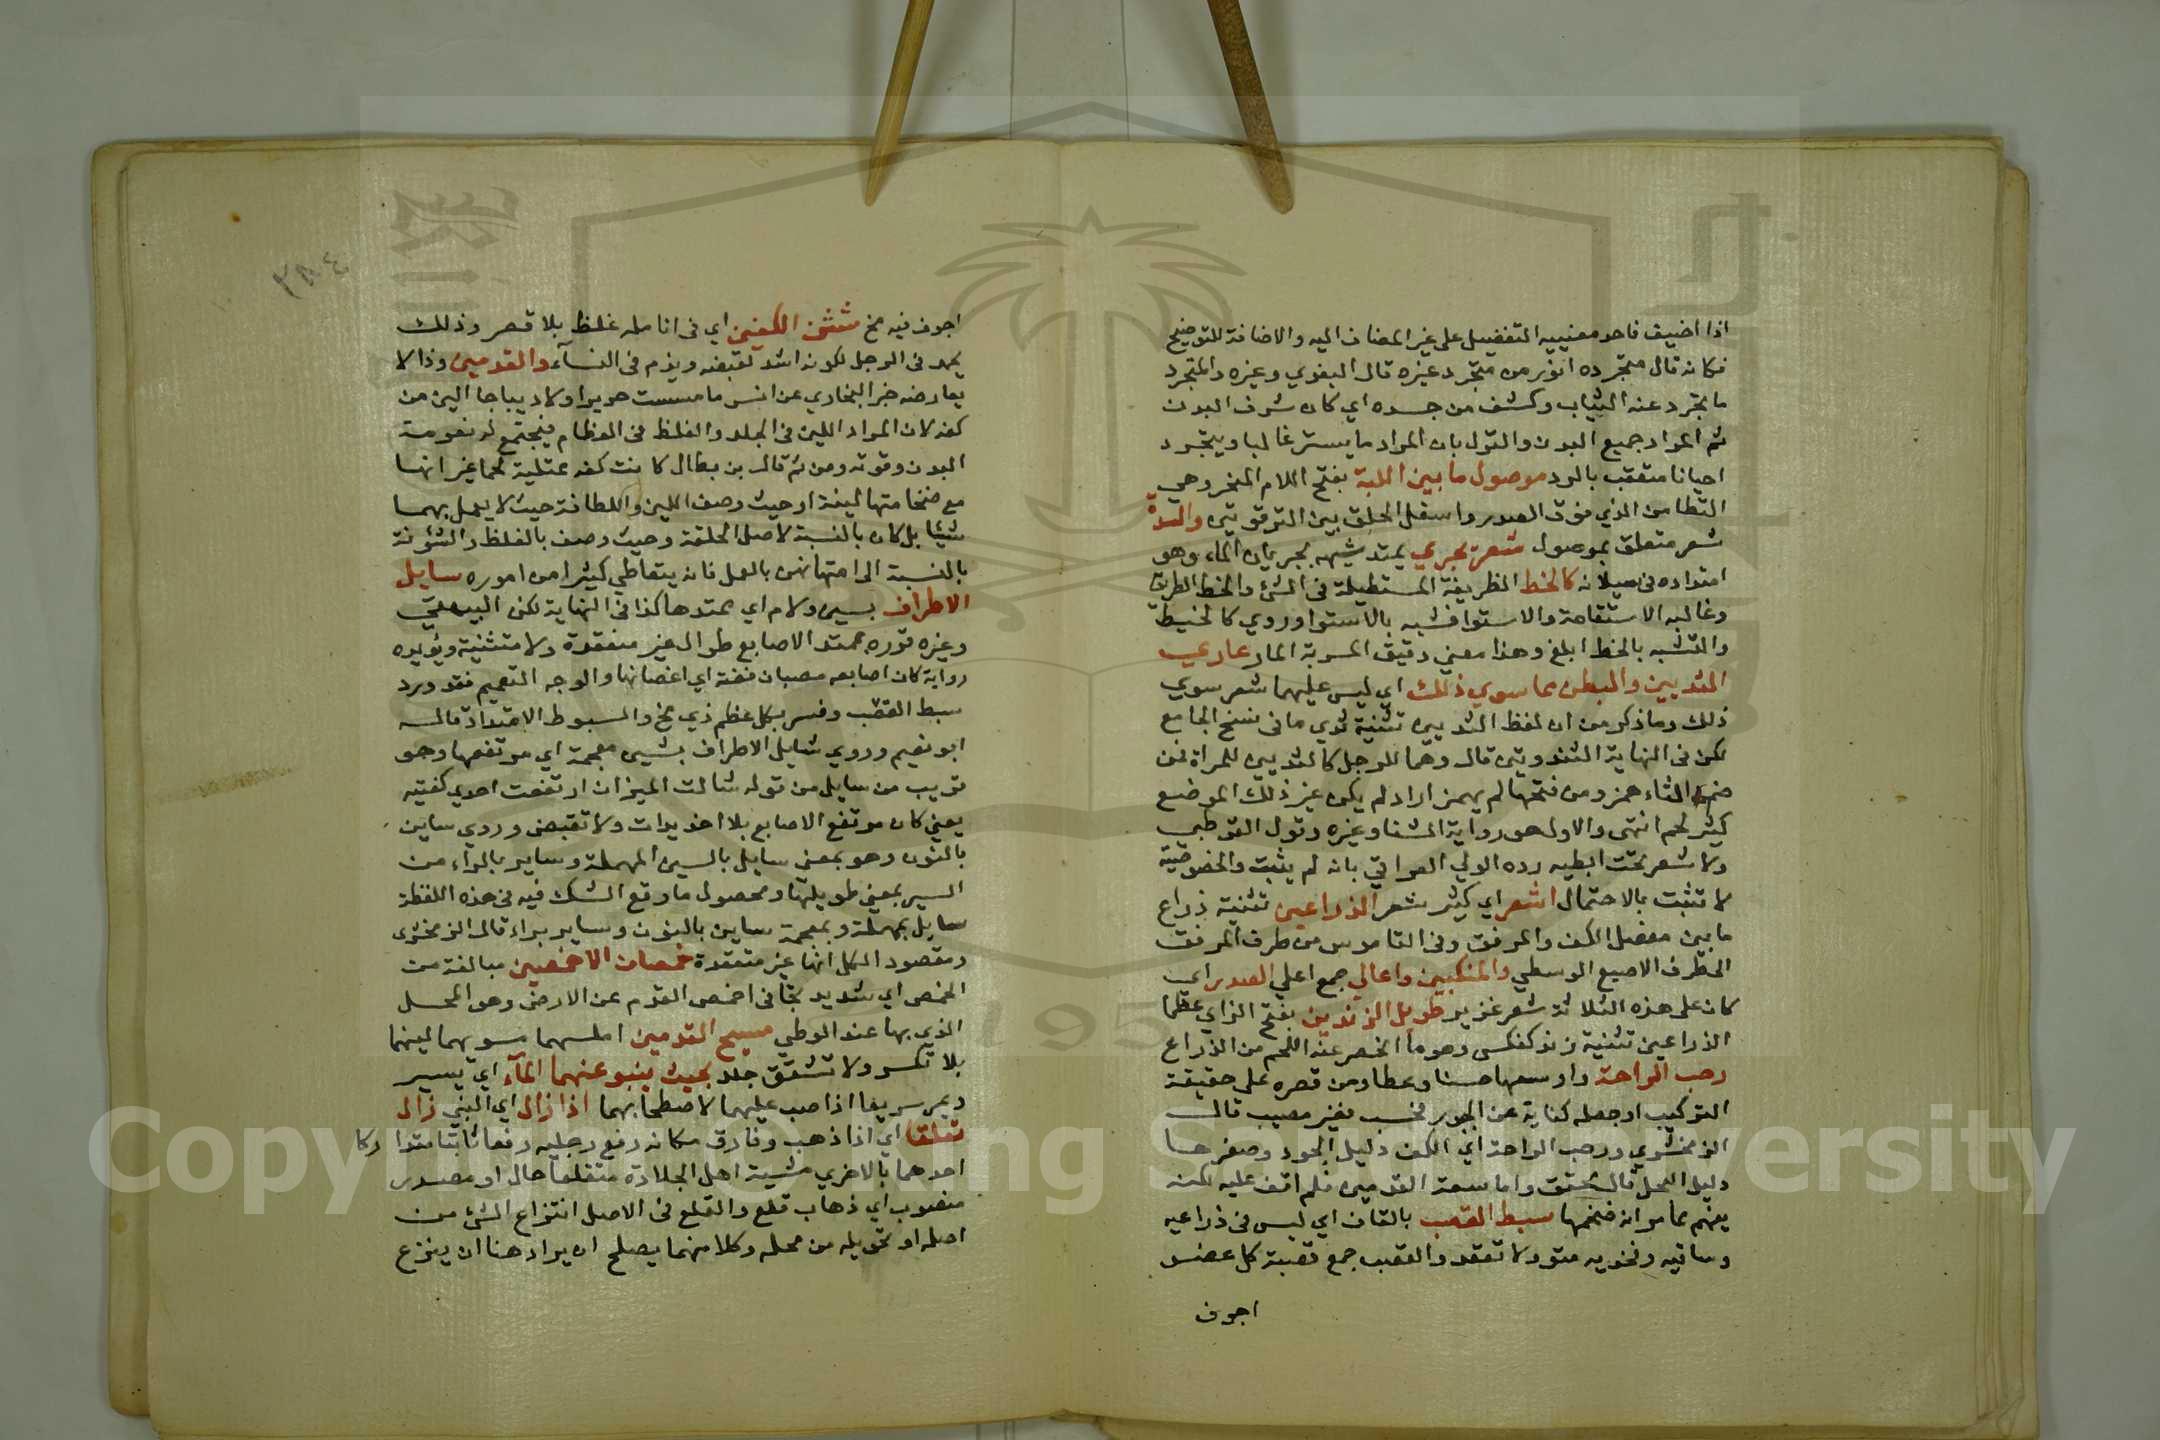 اذا اضيف فاحد معنييه التفضيل على غير المضاف اليه والاضافة للتوضيح
فكانه قال متجرده انور من متجرد غيره قال البغوي وغيره والمتجرد
ما تجرد عنه الثياب وكشف من جسده اي كان شرف البدن
ثم المراد جميع البدن والقول بان المراد ما يستر غالبا ويتجرد
احيانا متعقب بالرد موصول ما بين اللبة بفتح اللام المنحر وهي
التطامن الذي فوق الصدر واسفل الحلق بين الترقوتين والسرة
شعر متعلق بموصول شعر يجري يمتد شبهه بجريان الماء وهو
امتداده في سيلانه كالخط الطريقة المستطيلة في الشئ والخط الطريق
وغالبه الاستقامة والاستوا فشبه بالاستوا وروي كالخيط
والتشبه بالخط ابلغ وهذا معني دقيق المسربة المار عاري
الثديين والبطن مما سوي ذلك اي ليس عليهما شعر سوي
ذلك وما ذكر من ان لفظ الثديين تثنية ثدي ما في نسخ الجامع
لكن في النهاية الثندوتين قال وهما للرجل كالثديين للمراة فمن
ضم الثاء همز ومن فتحها لم يهمز اراد لم يكن غير ذلك الموضع
كثير لحم انتهى والاول هو رواية الشفا وغيره وقول القرطبي
ولا شعر تحت ابطيه رده الولي العراقي بانه لم يثبت والخصوصية
لا تثبت بالاحتمال اشعر اي كثير شعر الذراعين تثنية ذراع
ما بين مفصل الكف والمرفق وفي القاموس من طرف المرفق
الى طرف الاصبع الوسطي والمنكبين واعالي جمع اعلي الصدر اي
كان على هذه الثلاثة شعر غزير طويل الزندين بفتح الزاي عظما
الذراعين تثنية زند كفلس وهو ما انحسر عنه اللحم من الذراع
رحب الراحة واوسعها حسا وعطا ومن قصره على حقيقة
التركيب او جعله كناية عن الجود فحسب فغير مصيب قال
الزمخشري ورحب الراحة اي الكف دليل الجود وصغرها
دليل البخل قال محقق واما سعة القدمين فلم اقف عليه لكنه
يفهم مما مر انه ضخمها سبط القصب بالقاف اي ليس في ذراعيه
وساقيه وفخذيه نتو ولا تعقد والقصب جمع قصبة كل عضو
اجوف
٣٨٠٤
اجوف فيه مخ شثن الكفين اي في انامله غلظ بلا قصر وذلك
يحمد في الرجل لكونه اشد لقبضه ويذم في النسآء والقدمين وذا لا
يعارضه خبر البخاري عن انس ما مسست حريرا ولا ديباجا الين من
كفه لان المراد اللين في الجلد والغلظ في العظام فيجتمع له نعومة
البدن وقوته ومن ثم قال بن بطال كانت كفه ممتلية لحما غير انها
مع ضخامتها لينة او حيث وصف اللين واللطافة حيث لا يعمل بهما
شيئا بل كان بالنسبة لاصل الخلقة وحيث وصف بالغلظ والشثونة
بالنسبة الى امتهانهن بالعمل فانه يتعاطي كثيرا من اموره سايل
الاطراف بسين ولام اي ممتدها كذا في النهاية لكن البيهقي
وغيره قرره بممتد الاصابع طوال غير منعقدة ولا متثنية ويؤيده
رواية كان اصابعه قضبان فضة اي اغصانها والوجه التعميم فقد ورد
سبط القصب وفسر بكل عظم ذي مخ والسبوط الامتداد قاله
ابو نعيم وروي شايل الاطراف بشين معجمة اي مرتفعها وهو
قريب من سايل من قوله شالت الميزان ارتفعت احدي كفتيه
يعني كان مرتفع الاصابع بلا احديدات ولا تقبض وروي ساين
بالنون وهو بمعنى سايل بالسين المهملة وساير بالراء من
السير بمعني طويلها ومحصول ما وقع الشك فيه في هذه اللفظة
سايل بمهملة وبمعجمة ساين بالنون وساير براء قال الزمخشرى
ومقصود الكل انها غير متعقدة خمصان الاخمصين مبالغة من
الخمص اي شديد تجافي اخمص القدم عن الارض وهو المحل
الذي بها عند الوطي مسيح القدمين املسهما مسويهما لينهما
بلا تكسر ولا تشقق جلد بحيث ينبو عنهما المآء اي يسير
ويمر سريعا اذا صب عليهما لاصطحابهما اذا زال اي النبي زال
تقلعا اي اذا ذهب وفارق مكانه رفع رجليه رفعا ثابتا متدا ركا
احدهما بالاخري مشية اهل الجلادة متقلعا حال او مصدر
منصوب اي ذهاب قلع والقلع في الاصل انتزاع الشئ من
اصله او تحويله من محله وكلا منهما يصلح ان يراد هنا ان ينزع
Copyright © King Saud University